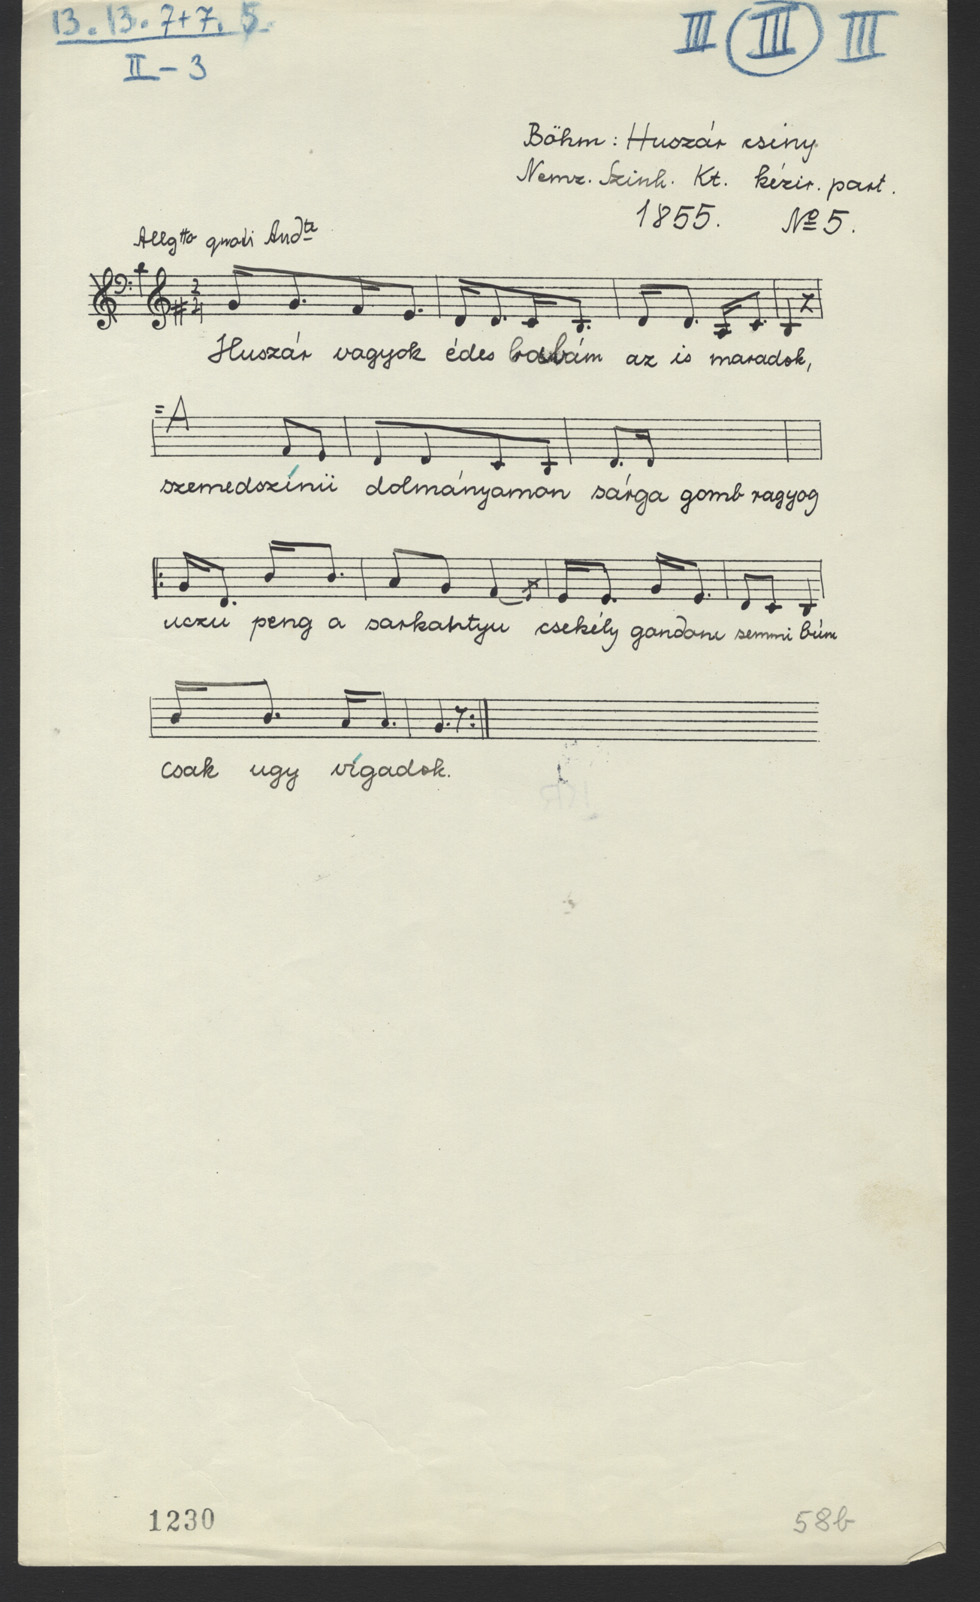 13. 13. 7+7. 5.
II - 3
III III III
Böhm: Huszár csiny
Nemz. Szinh. Kt. kézir. part.
1855. No 5.
Allgtto quasi Andte
2
4
Huszár vagyok édes babám az is maradok,
= A
szemedszínü dolmányamon sárga gomb ragyog
uczu peng a sarkahtyu csekély gondom semmi búm
csak ugy vígadok.
1230
58b